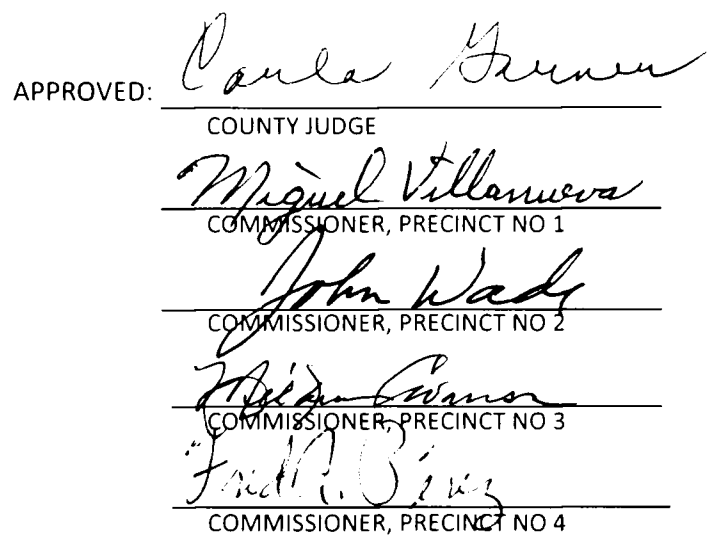 APPROVED: Carla Garner
COUNTY JUDGE
Miguel Villanueva
COMMISSIONER, PRECINCT NO 1
John Wade
COMMISSIONER, PRECINCT NO 2
COMMISSIONER, PRECINCT NO 3
Fred R. Perez
COMMISSIONER, PRECINCT NO 4